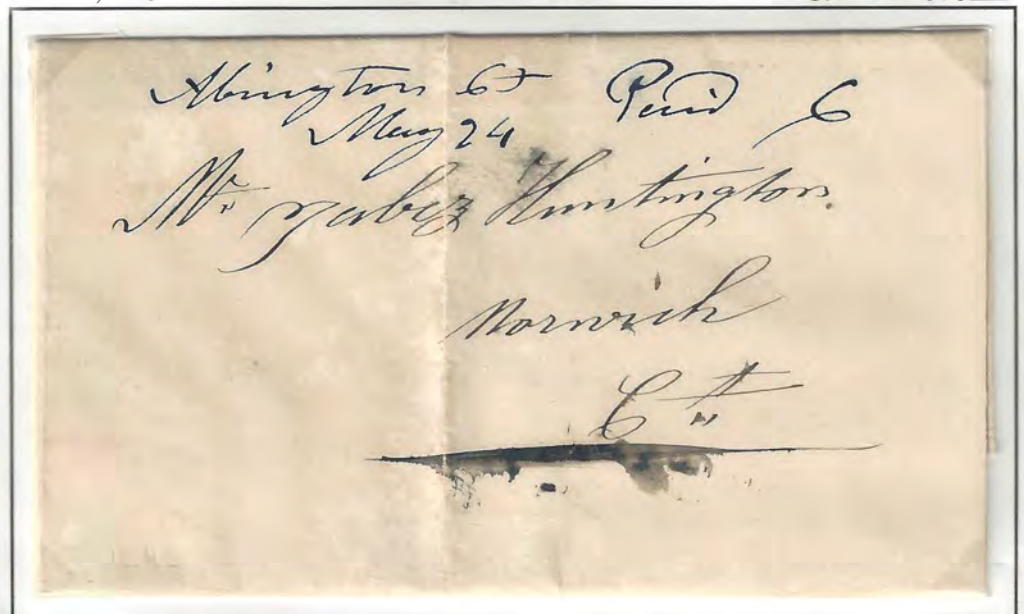 Abington Ct Paid 6
May 24
Mr. Jabez Huntington.
Norwich
Ct